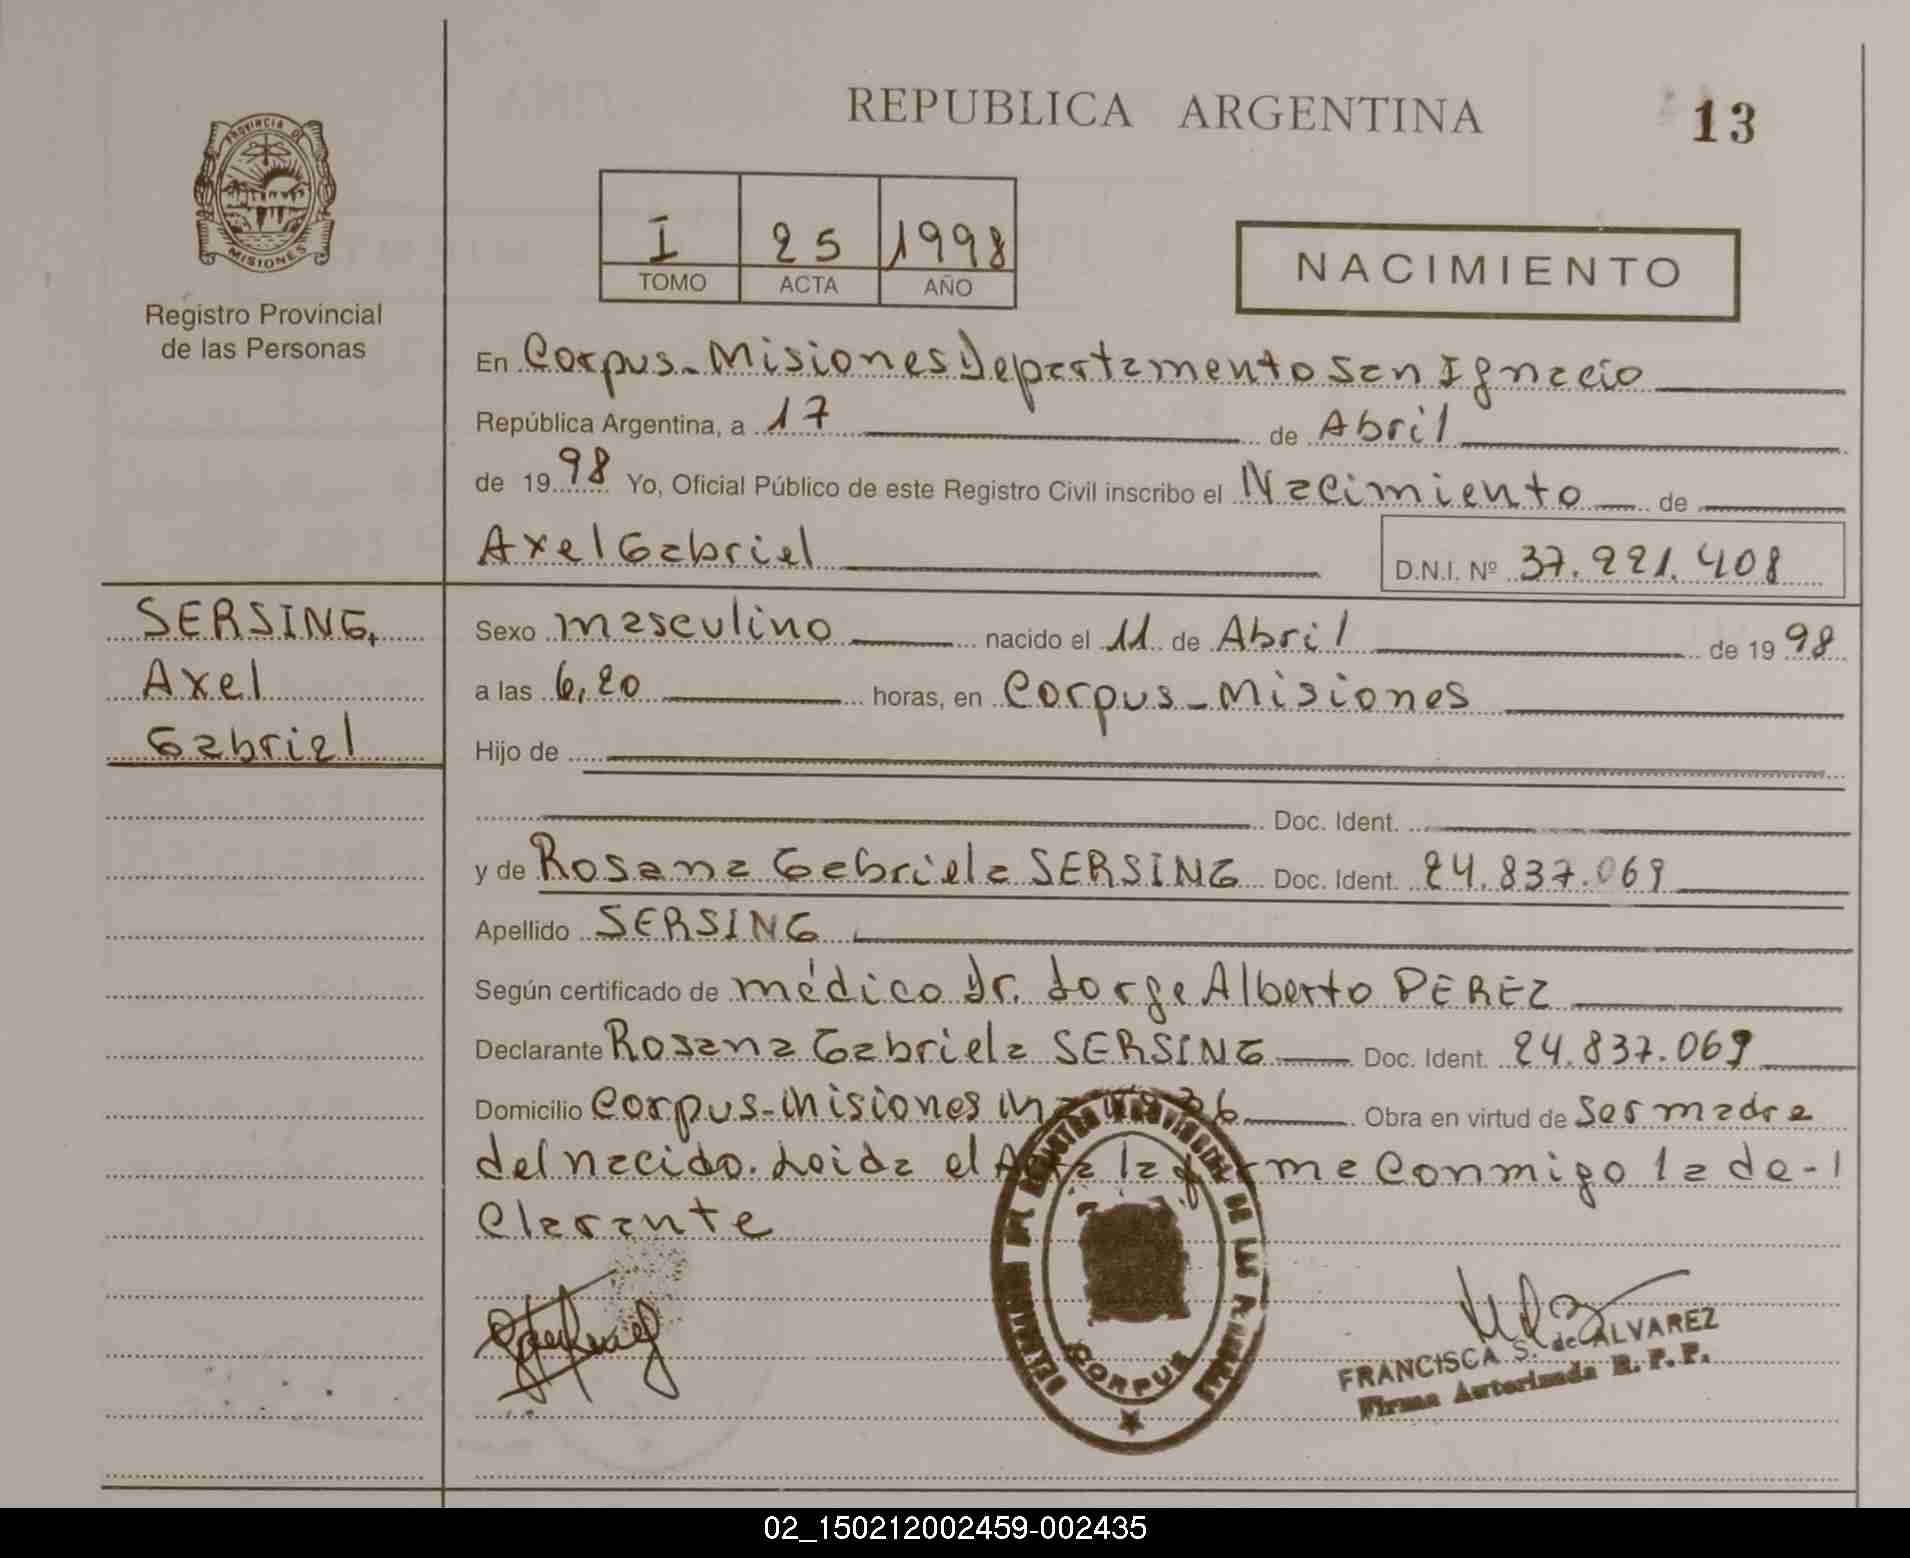 REPUBLICA ARGENTINA
13
PROVINCIA DE
MISIONES
Registro Provincial
de las Personas
I 25 1998
TOMO ACTA AÑO
NACIMIENTO
En Corpus_Misiones Departamento San Ignacio
República Argentina, a 17 de Abril
de 1998 Yo, Oficial Público de este Registro Civil inscribo el Nacimiento de
Axel Gabriel
D.N.I. Nº 37.221.408
SERSING,
Axel
Gabriel
Sexo masculino nacido el 11 de Abril de 1998
a las 6,20 horas, en Corpus_Misiones
Hijo de
Doc. Ident.
y de Rosana Gabriela SERSING Doc. Ident. 24.837.069
Apellido SERSING
Según certificado de médico Dr. Jorge Alberto PEREZ
Declarante Rosana Gabriela SERSING Doc. Ident. 24.837.069
Domicilio Corpus-Misiones Obra en virtud de ser madre
del nacido. Loida el Acta la firma Conmigo la de-
Clarante
REGISTRO PROVINCIAL DE LAS PERSONAS
CORPUS
FRANCISCA S. de ALVAREZ
Firma Autorizada R. P. P.
02_150212002459-002435